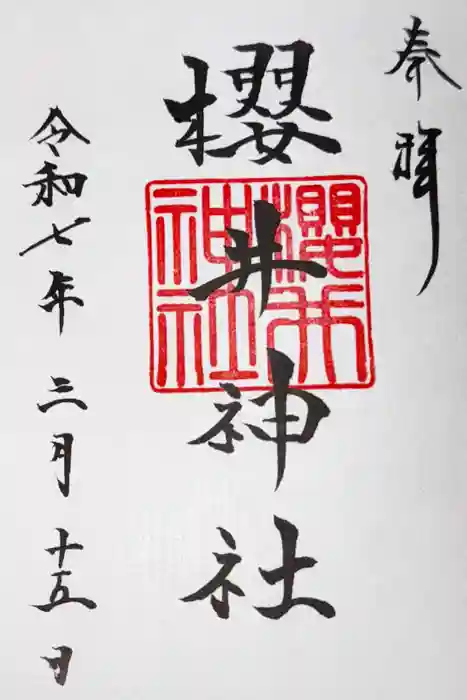 奉拝
櫻井神社
櫻井
神社
令和七年 三月 十五日